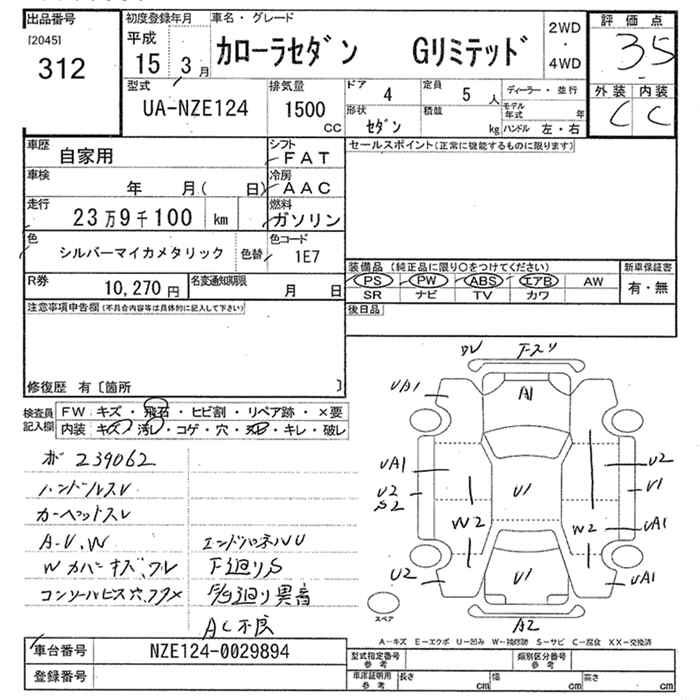 出品番号
[2045]
312
初度登録年月
平成
15 3月
車名・グレード
カローラセダン Gリミテッド
2WD
・
4WD
評価点
3.5
外装 内装
C C
型式
UA-NZE124
排気量
1500
CC
ドア 4
定員 5 人
ディーラー・並行
形状
セダン
積載
kg
モデル年式 年
ハンドル 左・右
車歴
自家用
シフト
FAT
車検
年 月( 日)
冷房
AAC
走行
23万9千100 km
燃料
ガソリン
色
シルバーマイカメタリック
色替
色コード
1E7
R券
10,270 円
名変通知期限
月 日
セールスポイント(正常に機能するものに限ります)
装備品 (純正品に限り○をつけてください)
新車保証書
PS PW ABS エアB AW
有・無
SR ナビ TV カワ
後日品
注意事項申告欄(不具合内容等は具体的に記入して下さい)
修復歴 有〔箇所 〕
検査員
記入欄
FW キズ・飛石・ヒビ割・リペア跡・×要
内装 キズ・汚レ・コゲ・穴・スレ・キレ・破レ
メ 239062
ハンドルスレ
カーペットスレ
A・U、W
エンドパネルU
W カバーキズ、スレ
下廻りS
コンソールビス穴、スレ
F/S廻り異音
AC不良
UA1
A1
UA1
U2
S2
U1
U2
U1
W2
W2
UA1
U2
U1
UA1
A2
スペア
A-キズ E-エクボ U-凹み W-補修跡 S-サビ C-腐食 XX-交換済
車台番号
NZE124-0029894
登録番号
型式指定番号
参考
類別区分番号
参考
車庫証明用
参考
長さ cm
幅 cm
高さ cm